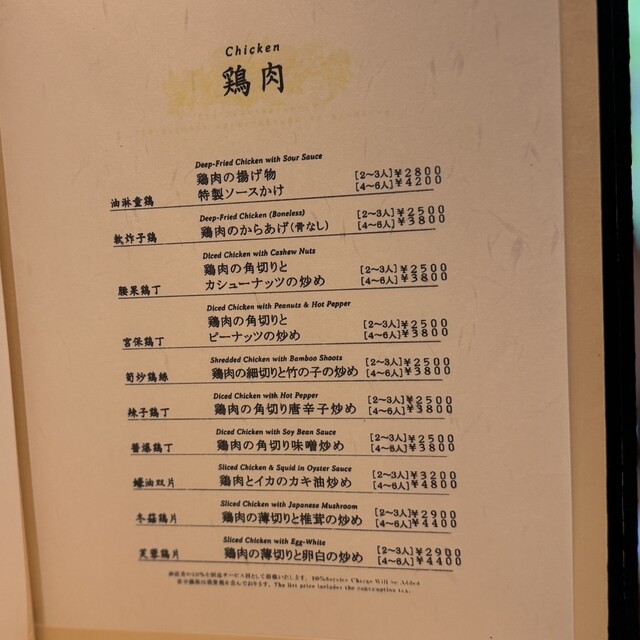 Chicken
鶏肉
Deep-Fried Chicken with Sour Sauce
鶏肉の揚げ物 [2~3人]¥2800
油淋童鶏 特製ソースかけ [4~6人]¥4200
Deep-Fried Chicken (Boneless)
[2~3人]¥2500
軟炸子鶏 鶏肉のからあげ(骨なし) [4~6人]¥3800
Diced Chicken with Cashew Nuts
鶏肉の角切りと [2~3人]¥2500
腰果鶏丁 カシューナッツの炒め [4~6人]¥3800
Diced Chicken with Peanuts & Hot Pepper
鶏肉の角切りと [2~3人]¥2500
宮保鶏丁 ピーナッツの炒め [4~6人]¥3800
Shredded Chicken with Bamboo Shoots
[2~3人]¥2500
筍炒鶏絲 鶏肉の細切りと竹の子の炒め [4~6人]¥3800
Diced Chicken with Hot Pepper
[2~3人]¥2500
辣子鶏丁 鶏肉の角切り唐辛子炒め [4~6人]¥3800
Diced Chicken with Soy Bean Sauce
[2~3人]¥2500
醬爆鶏丁 鶏肉の角切り味噌炒め [4~6人]¥3800
Sliced Chicken & Squid in Oyster Sauce
[2~3人]¥3200
蠔油双片 鶏肉とイカのカキ油炒め [4~6人]¥4800
Sliced Chicken with Japanese Mushroom
[2~3人]¥2900
冬菇鶏片 鶏肉の薄切りと椎茸の炒め [4~6人]¥4400
Sliced Chicken with Egg-White
[2~3人]¥2900
芙蓉鶏片 鶏肉の薄切りと卵白の炒め [4~6人]¥4400
10%Service Charge Will be Added
The list price includes the consumption tax.